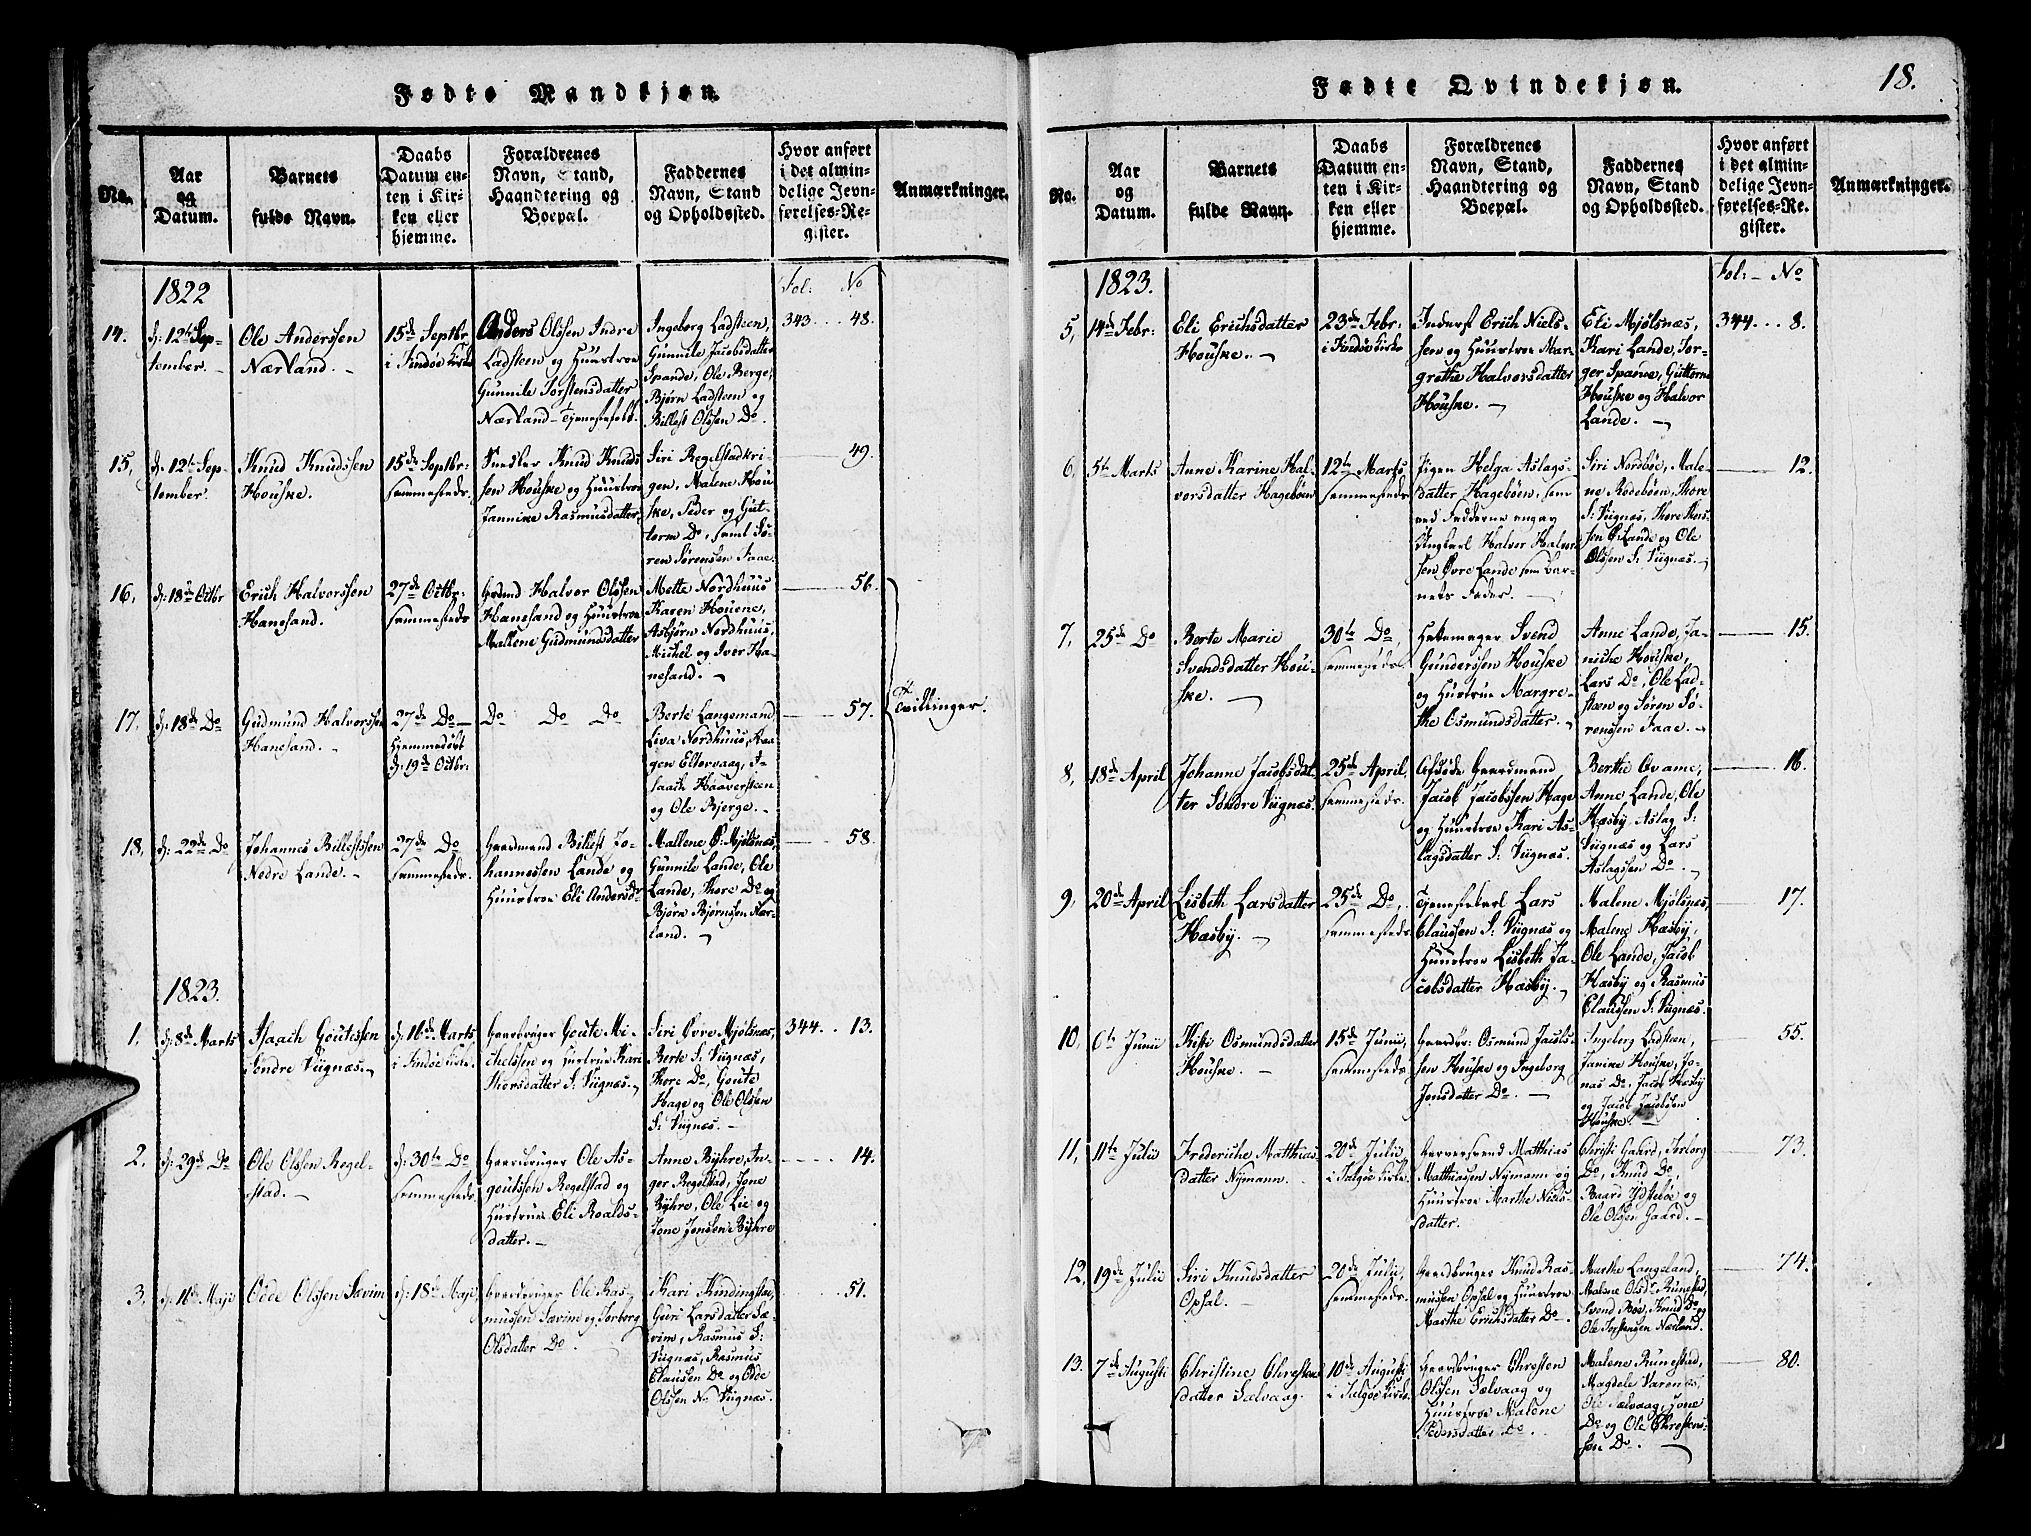 Fødte Mandkjøn.
No.
Aar
og
Datum.
Barnets
fulde Navn.
Daabs
Datum en-
ten i Kir-
ken eller
hjemme.
Forældrenes
Navn, Stand,
Haandtering og
Boepæl.
Faddernes
Navn, Stand
og Opholdssted.
Hvor anført
i det almin-
delige Jevn-
førelses-Re-
gister.
Anmærkninger.
1822
Fol: No
14.
d: 12te Sep-
tember.
Ole Anderssen
Nærland.
15de Septbr
i Findøe Kirke
Anders Olssen Indre
Ladsteen og Huustroe
Gunnile Torstensdatter
Nærland Tjenestefolk.
Ingeborg Ladsteen,
Gunnile Jacobsdatter
Spande, Ole Berge,
Bjørn Ladsteen og
Billest Olssen Do.
343... 48.
15,
d: 12te Sep-
tember.
Knud Knudssen
Houske.
15de Septbr:
sammesteds.
Knud Knuds
sen Houske og Huustroe
Jannike Rasmusdatter,
Siri Regelstadkri-
gen, Malene Hou-
ske, Peder og Gut-
torm Do, samt Sø-
ren Sørensen Faae
49.
16,
d: 18de Octbr
Erich Halvorssen
Hanesand.
27de Octbr:
sammesteds
Grdmd Halvor Olssen
Hanesand og Huustroe
Mallene Gudmundsdatter
Mette Nordhuus
Karen Houene,
Asbjørn Nordhuus,
Michel og Iver Ha-
nesand.
56.
17,
d: 18de Do
Gudmund Halvorssen
Hanesand.
27de Do
Hjemmedøbt
d: 19de Octbr:
Do Do Do
Berte Langemand
Liva Nordhuus, Aa-
gen Eltervaag, I-
saach Haaversteen
og Ole Bjerge.
57.
Tvillinger.
18,
d: 22de Do
Johannes Billestssen
Nedre Lande.
27de Do
sammesteds.
Gaardmand Billest Jo-
hannessen Lande og
Huustroe Eli Andersdr
Mallene Ø: Mjølsnæs,
Gunnile Lande, Ole
Lande, Thore Do og
Bjørn Bjørnsen Nær-
land.
58.
1823.
1.
d: 8de Marts
Isaach Goutessen
Søndre Viignæs.
d: 16de Marts
i Findøe Kirke.
Gaardbruger Goute Mi-
chelssen og Hustrue Kari
Thorsdatter S: Viignæs.
Siri Øvre Mjølsnæs,
Berte S: Viignæs,
Thore Do, Goute
Hage og Ole Olssen
S: Viignæs.
344.. 13.
2.
d: 29de Do
Ole Olssen Regel-
stad.
d: 30te Do
sammesteds.
Gaardbruger Ole As-
goutssen Regelstad og
Hustrue Eli Roalds-
datter.
Anne Byhre, In-
ger Regelstad, Jone
Byhre, Ole Lie og
Jone Jonssen Byhre
14.
3.
d: 16de Maji
Odde Olssen Sævim
d: 18de Maji
Gaardbruger Ole Ras-
mussen Sævim og Torborg
Olsdatter Do.
Kari Kindingstad,
Guri Larsdatter Sæ-
vim, Rasmus S:
Viignæs, Rasmus
Claussen Do og Odde
Olssen N: Viignæs.
51.
Fødte Qvindekjøn.
18.
No.
Aar
og
Datum.
Barnets
fulde Navn.
Daabs
Datum en-
ten i Kir-
ken eller
hjemme.
Forældrenes
Navn, Stand,
Haandtering og
Boepæl.
Faddernes
Navn, Stand
og Opholdssted.
Hvor anført
i det almin-
delige Jevn-
førelses-Re-
gister.
Anmærkninger.
1823.
Fol: No
5,
14de Febr:
Eli Erichsdatter
Houske.
23de Febr:
i Findøe Kirke
Inderst Erich Niels-
sen og Huustroe Mar-
grethe Halvorsdatter
Houske.
Eli Mjølsnæs,
Kari Lande, Tor-
ger Spanne, Guttorm
Houske og Halvor
Lande.
344... 8.
6,
5te Marts
Anne Karine Hal-
vorsdatter Hagebøen
12te Marts
sammesteds
Pigen Helga Aslags-
datter Hagebøen, som
ved Fadderne angav
Ungkarl Halvor Halvor-
sen Øvre Lande som Bar-
nets Fader.
Siri Nordbøe, Male-
ne Rødebøen, Thore
S: Viignæs, Thore Thors-
sen Ø: Lande og Ole
Olssen S: Viignæs.
12.
7,
25de Do
Berte Marie
Svendsdatter Hou-
ske.
30te Do
sammesteds.
Svend
Gunderssen Houske
og Hustrue Margre-
the Osmundsdatter.
Anne Lande, Ja-
niche Houske,
Lars Do, Ole Lad-
steen og Søren Sø-
renssen Faae.
15.
8,
18de April
Johanne Jacobsdat-
ter Søndre Viignæs.
25de April,
sammesteds.
Afdøde Gaardmand
Jacob Jacobssen Hage
og Huustroe Kari As-
lagsdatter S: Viignæs.
Berthe Qvame,
Anne Lande, Ole
Hæsby, Aslag S:
Viignæs og Lars
Aslagssen Do.
16.
9,
20de April
Lisbeth Larsdatter
Hæsby.
25de Do,
sammesteds.
Tjenestekarl Lars
Claussen S: Viignæs og
Huustroe Lisbeth Ja-
cobsdatter Hæsby.
Malene Mjølsnæs,
Malene Hæsby,
Ole Lande, Jacob
Hæsby og Rasmus
Claussen S: Viignæs.
17.
10,
6te Junii
Kisti Osmundsdatter
Houske.
15de Junii,
sammesteds.
Gaardbr: Osmund Jacobs-
sen Houske og Ingeborg
Jonsdatter Do.
Ingeborg Ladsteen,
Janike Houske, Jo-
nas Do, Jacob Hæsby
og Jacob Jacobssen
Houske.
55.
11,
11te Julii
Frederiche Matthias
datter Nymann.
20de Julii,
i Talgøe Kirke.
Matthias
Matthiassen Nymann og
Huustroe Marthe Niels-
datter.
Christi Gaard, Torborg
Do, Knud Do,
Baard Ydstebøe og
Ole Olssen Gaard.
73.
12,
19de Julii
Siri Knudsdatter
Opsal.
20de Julii,
sammesteds.
Gaardbruger Knud Ras-
mussen Opsal og Huustroe
Marthe Erichsdatter Do.
Marthe Langeland,
Malene Olsdr Runestad,
Svend Bøe, Knud Do og
Ole Torstensen Nærland.
74.
13.
7de Augusti
Christine Chrestens
datter Salvaag.
10de Augusti
i Talgøe Kirke.
Gaardbruger Chresten
Olssen Sælvaag og
Huustroe Malene
Pedersdatter Do.
Malene Runestad,
Magdele Varenæs,
Ole Sælvaag, Jone
Do og Ole Chrestens-
sen Do.
80.